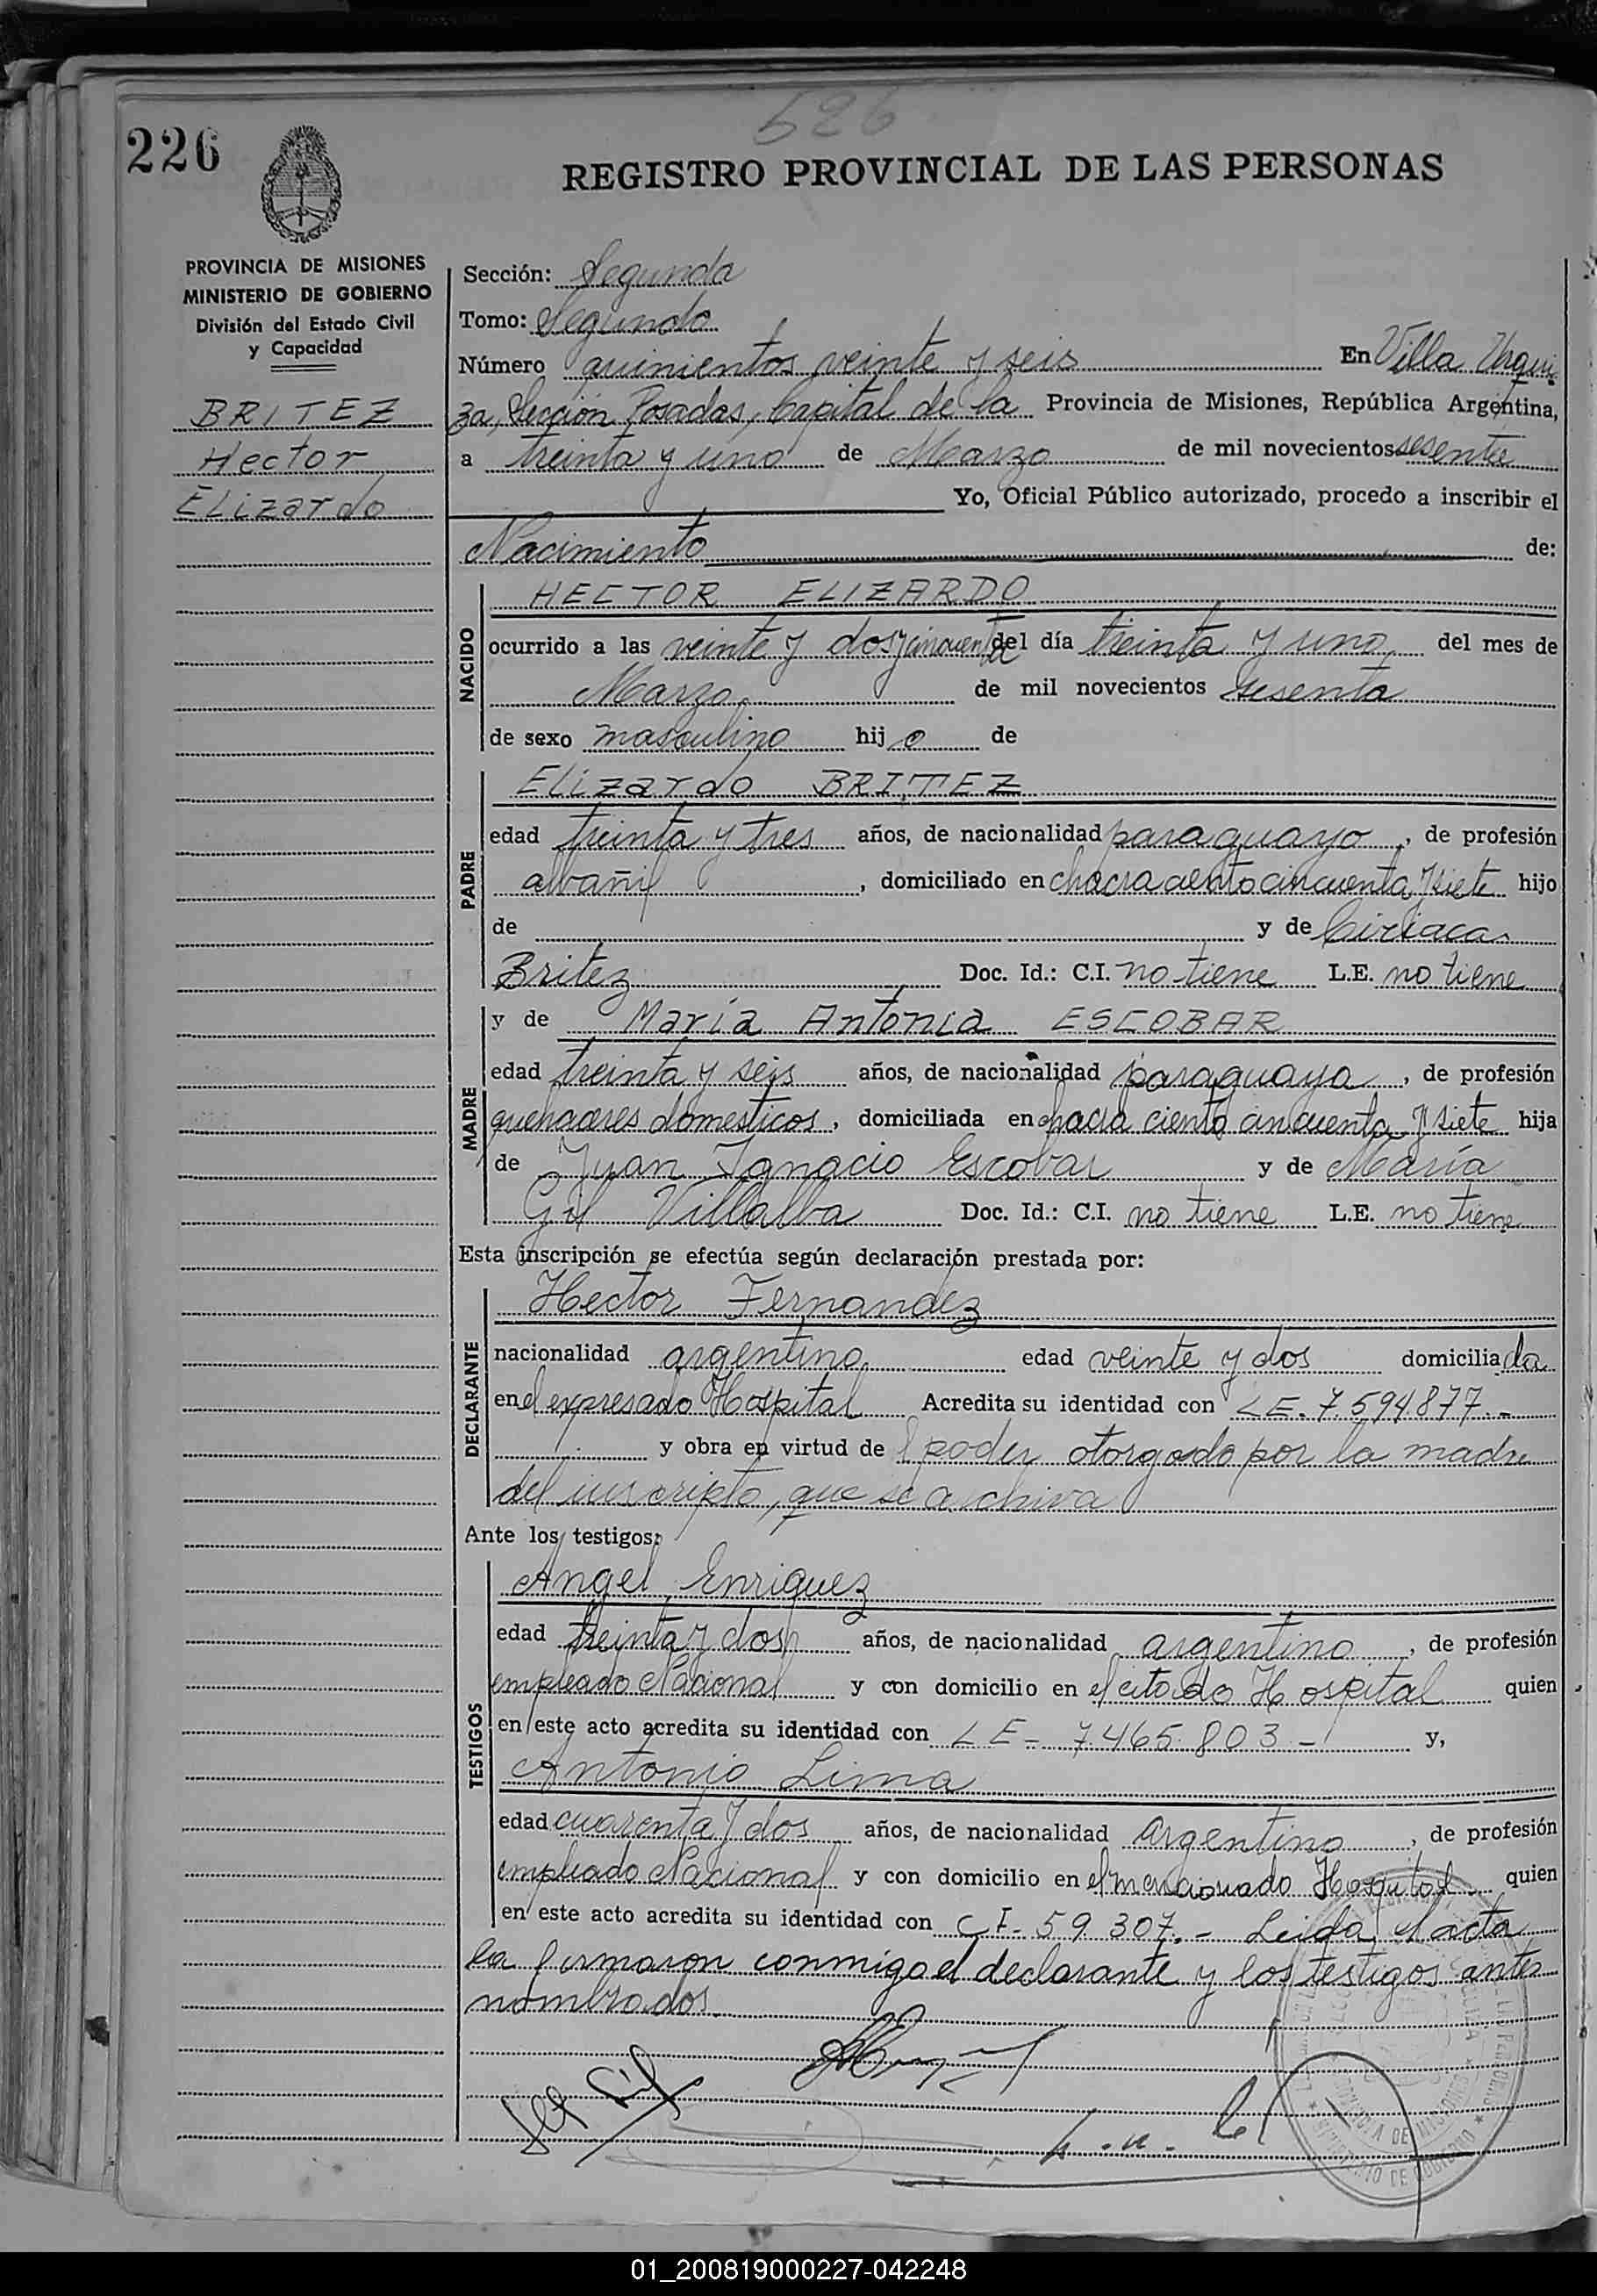 526
226
REGISTRO PROVINCIAL DE LAS PERSONAS
PROVINCIA DE MISIONES
MINISTERIO DE GOBIERNO
División del Estado Civil
y Capacidad
BRITEZ
Hector
Elizardo
Sección: Segunda
Tomo: Segundo
Número quinientos veinte y seis En Villa Urqui
za, Sección Posadas, Capital de la Provincia de Misiones, República Argentina,
a treinta y uno de Marzo de mil novecientos sesenta
Yo, Oficial Público autorizado, procedo a inscribir el
Nacimiento de:
NACIDO
HECTOR ELIZARDO
ocurrido a las veinte y dos y cincuenta del día treinta y uno, del mes de
Marzo de mil novecientos sesenta
de sexo masculino hijo de
PADRE
Elizardo BRITEZ
edad treinta y tres años, de nacionalidad paraguayo, de profesión
albañil, domiciliado en chacra ciento cincuenta y siete hijo
de y de Ciriaca
Britez Doc. Id.: C.I. no tiene L.E. no tiene
MADRE
y de María Antonia ESCOBAR
edad treinta y seis años, de nacionalidad paraguaya, de profesión
quehaceres domesticos, domiciliada en chacra ciento cincuenta y siete hija
de Juan Ignacio Escobar y de María
Gil Villalba Doc. Id.: C.I. no tiene L.E. no tiene
Esta inscripción se efectúa según declaración prestada por:
DECLARANTE
Hector Fernandez
nacionalidad argentino edad veinte y dos domiciliada
en el expresado Hospital Acredita su identidad con LE. 7.594877.-
y obra en virtud de l poder otorgado por la madre
del inscripto, que se archiva
Ante los testigos:
TESTIGOS
Angel Enriquez
edad treinta y dos años, de nacionalidad argentino, de profesión
empleado Nacional y con domicilio en el citado Hospital quien
en este acto acredita su identidad con LE- 7.465.803- y,
Antonio Lima
edad cuarenta y dos años, de nacionalidad argentino, de profesión
empleado Nacional y con domicilio en el mencionado Hospital quien
en este acto acredita su identidad con CI- 59.307.- Leida el acta
la firmaron conmigo el declarante y los testigos antes
nombrados.
01_200819000227-042248